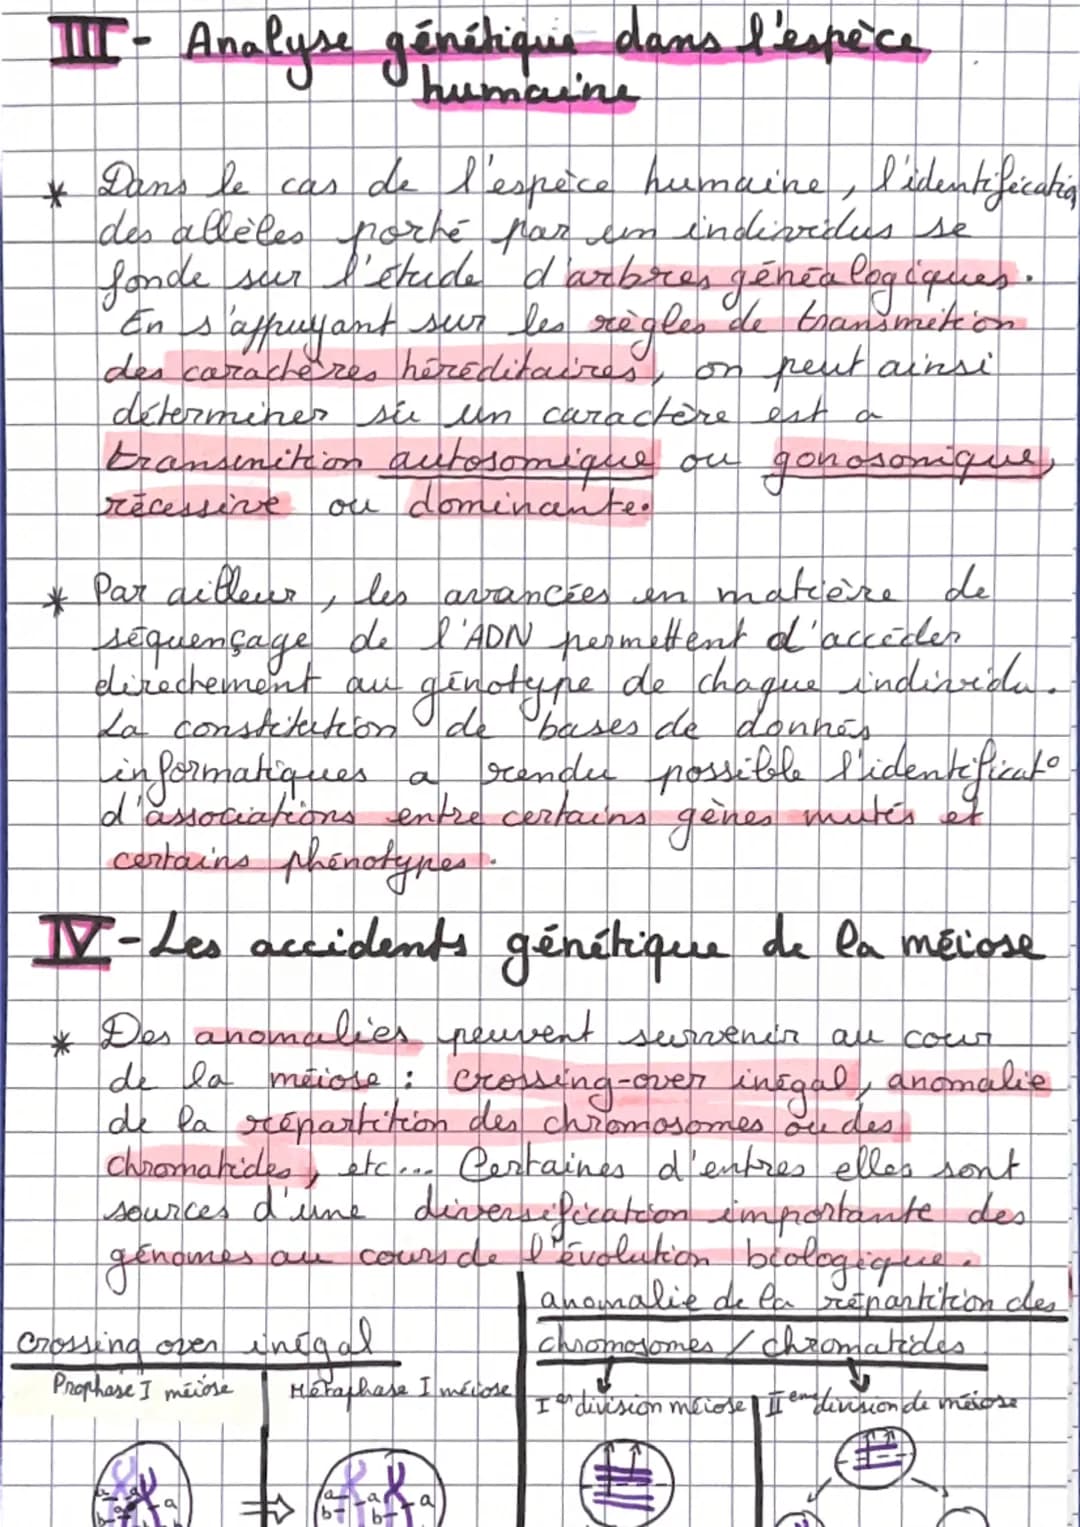 III - Analyse génétique dans l'espèce
humaine
* Dans le cas de l'espèce humaine, l'identificatio
des allèles porté par un individus se
fonde sur l'étude d'arbres généalogiques.
En s'appuyant sur les règles de transmition
des caractères héréditaires, on peut ainsi
déterminer si un caractère est a
transmition autosomique ou gonosomique,
récessive ou dominante.
* Par ailleur, les avancées en matière de
séquençage de l'ADN permettent d'accéder
directement au génotype de chaque individu.
La constitution de bases de donnés
informatiques a rendu possible l'identificat°
d'associations entre certains gènes mutés et
certains phénotypes.
IV - Les accidents génétique de la méiose
* Des anomalies peuvent survenir au cour
de la méiose : crossing-over inégal, anomalie
de la répartition des chromosomes ou des
chromatides, etc... Certaines d'entres elles sont
sources d'une diversification importante des
génomes au cours de l'évolution biologique.
crossing over inégal
Prophase I méiose
Métaphase I méiose
anomalie de la répartition des
chromosomes / chromatides
Ier division méiose
IIeme division de méiose
a
a
b
a
a
a
a
b
b